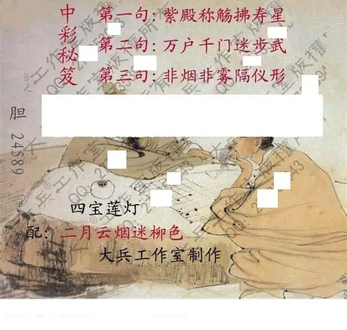 中彩秘笈
第一句:紫殿称觞拂寿星
第二句:万户千门迷步武
第三句:非烟非雾隔仪形
胆 24589
四宝莲灯
配:二月云烟迷柳色
大兵工作室制作